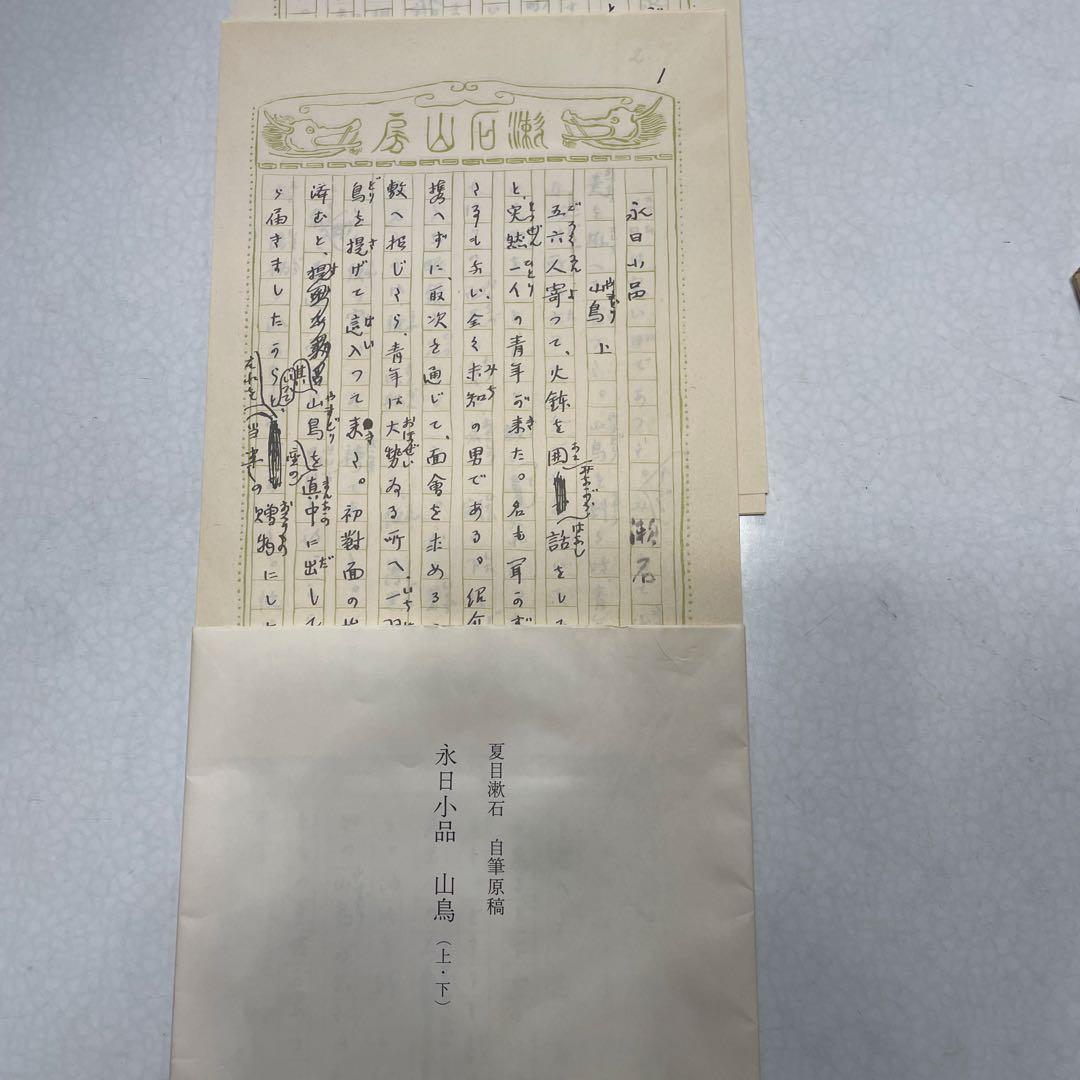 1
漱石山房
永日小品 漱石
山鳥 上
五六人寄つて、火鉢を囲みながら話をして
と、突然一人の青年が来た。名も聞かず
た事もない、全く未知の男である。紹介
携へずに、取次を通じて、面會を求める
敷へ招じたら、青年は大勢ゐる所へ、一羽
鳥を提げて這入つて来た。初對面の挨
済むと、其山鳥を座の真中に出して
ら届きましたからと、それを當座の贈物にした
夏目漱石 自筆原稿
永日小品 山鳥（上・下）